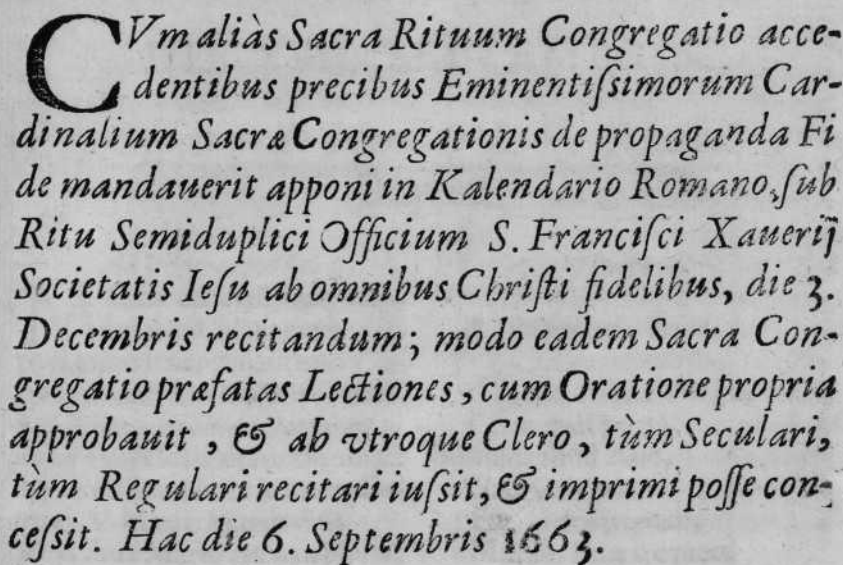 CVm aliàs Sacra Rituum Congregatio acce-
dentibus precibus Eminentiſsimorum Car-
dinalium Sacræ Congregationis de propaganda Fi
de mandauerit apponi in Kalendario Romano, ſub
Ritu Semiduplici Officium S. Franciſci Xauerij
Societatis Ieſu ab omnibus Chriſti fidelibus, die 3.
Decembris recitandum; modo eadem Sacra Con-
gregatio præfatas Lectiones, cum Oratione propria
approbauit, & ab vtroque Clero, tùm Seculari,
tùm Regulari recitari iuſsit, & imprimi poſſe con-
ceſsit. Hac die 6. Septembris 1663.